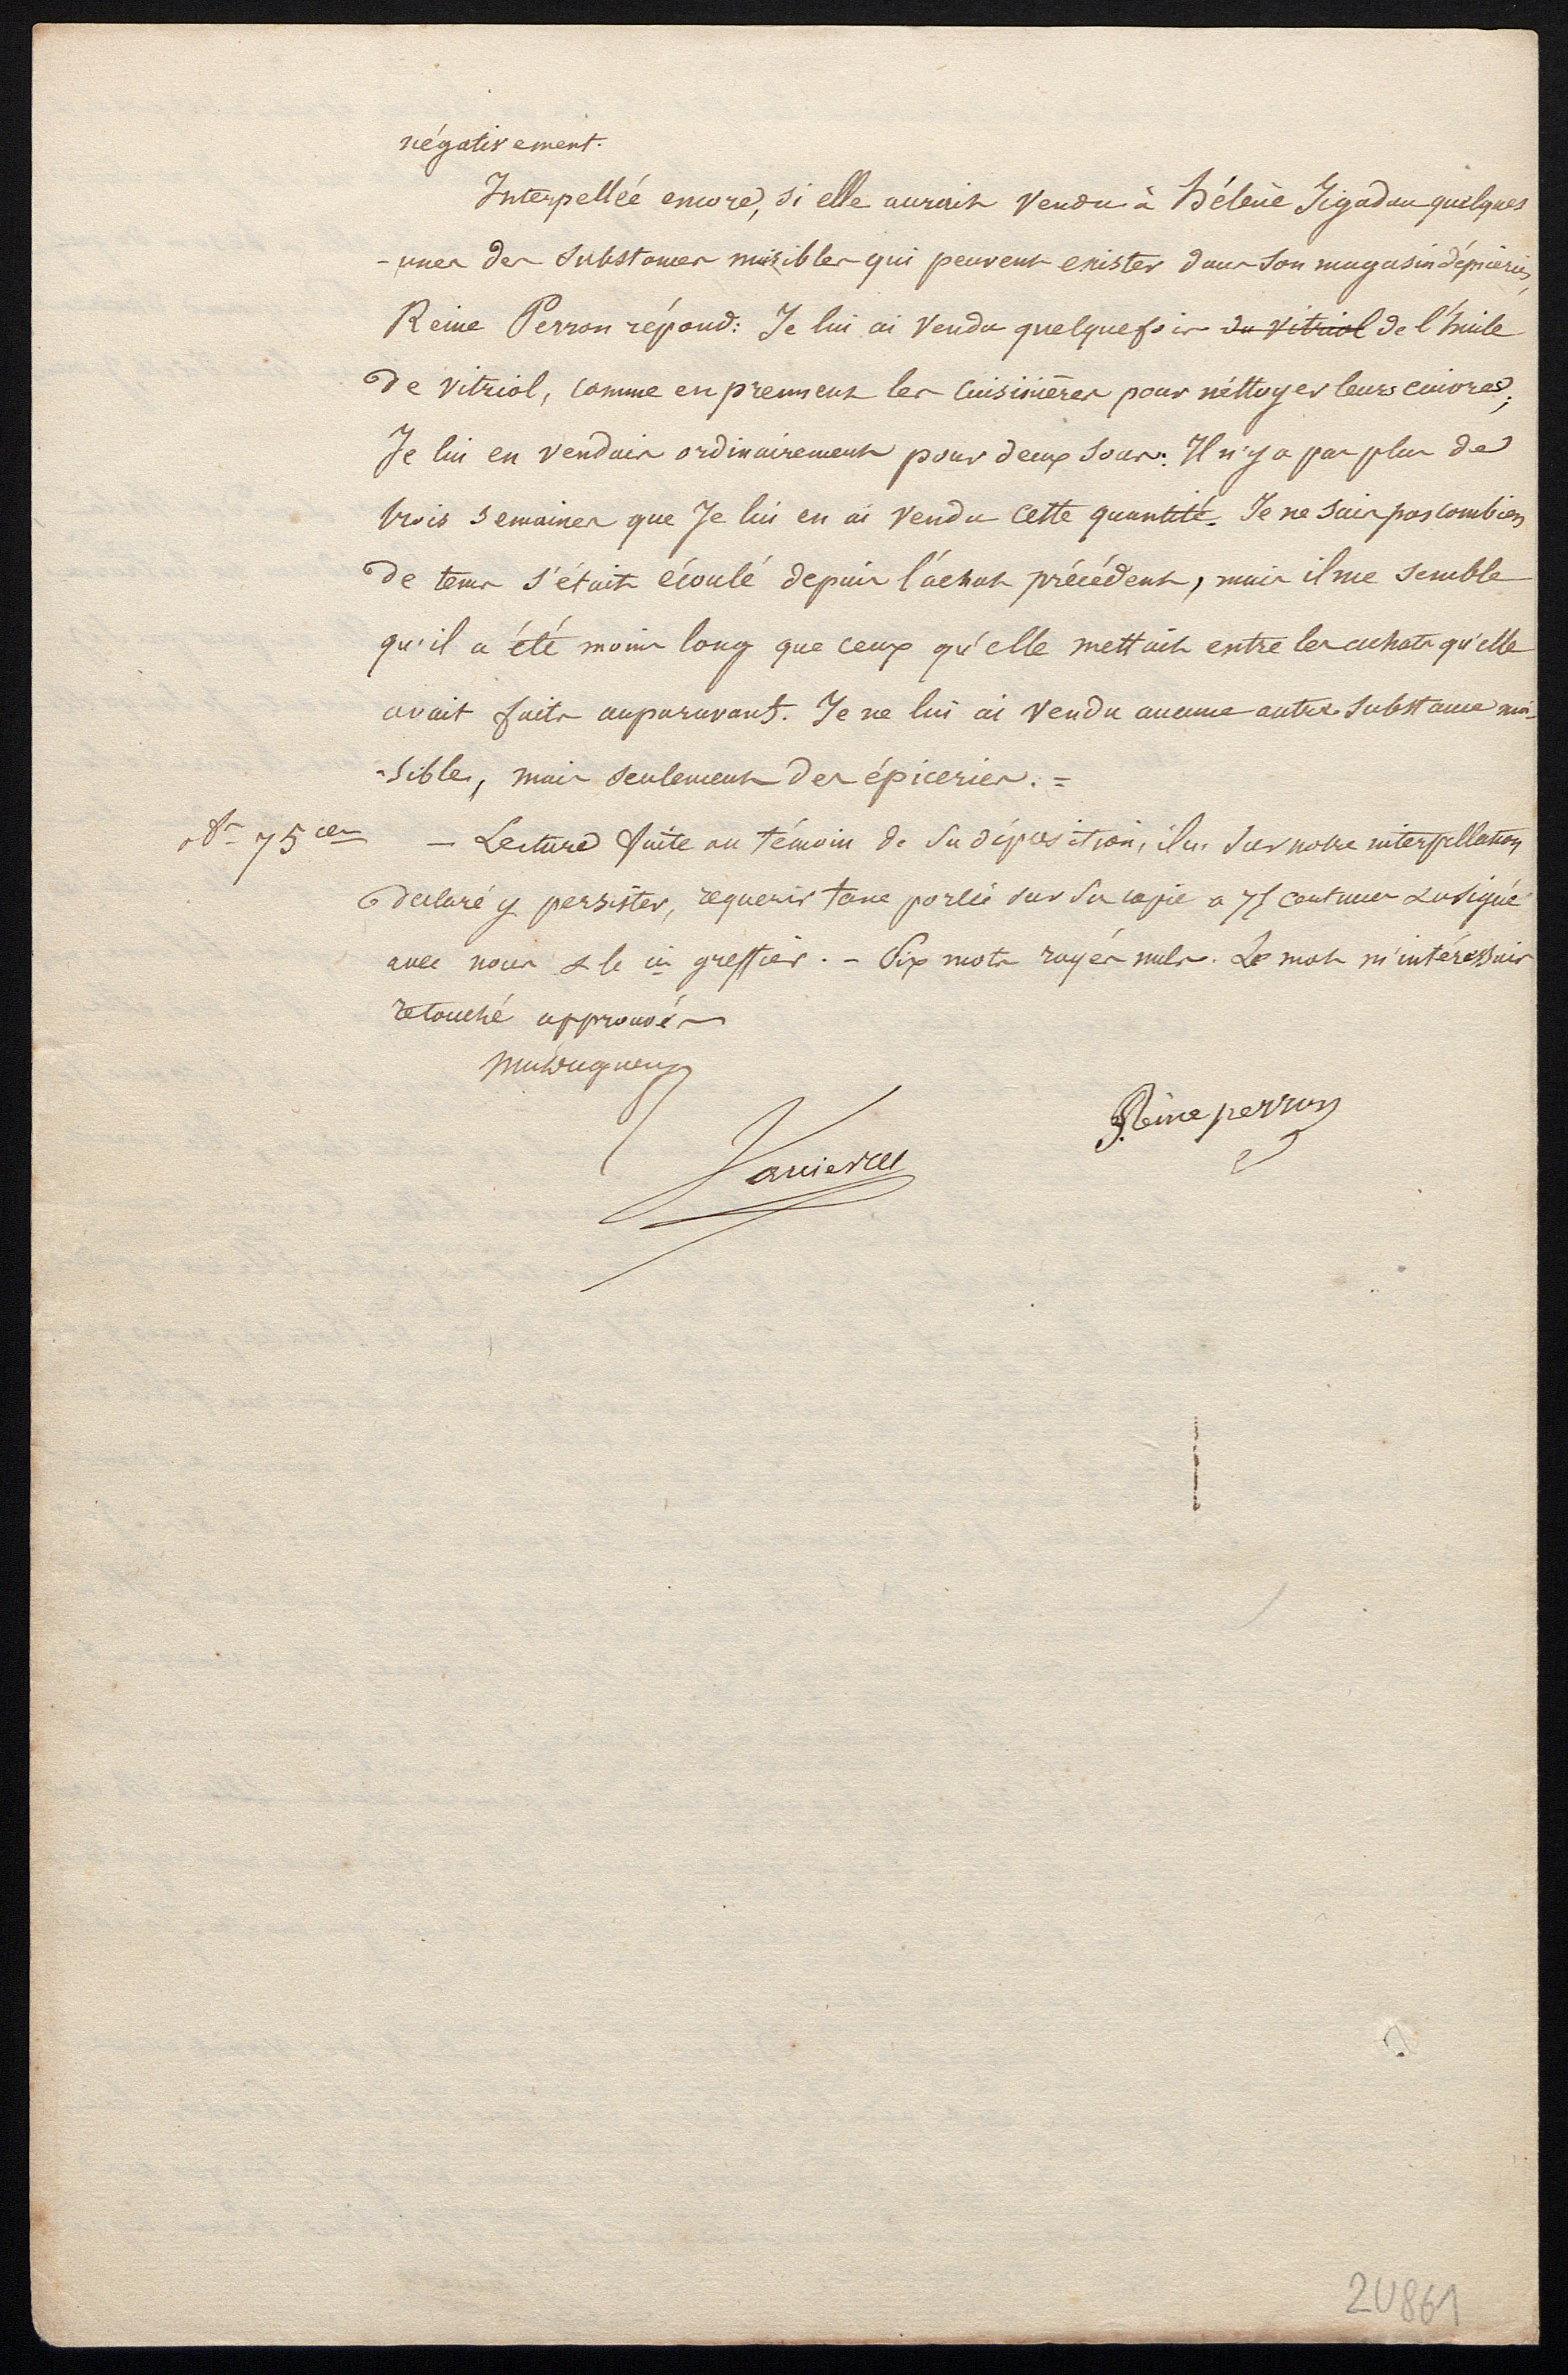 négativement.
Interpellée encore, si elle aurait vendu à hélène Jigadau quelques
-unes des substances nuisibles qui peuvent exister dans son magasin d'épiceries,
Reine Perron répond: Je lui ai vendu quelquefois du vitriol de l'huile
de vitriol, comme en prennent les cuisinières pour néttoyer leurs cuivres;
Je lui en vendais ordinairement pour deux sous. Il n'y a pas plus de
trois semaines que Je lui en ai vendu cette quantité. Je ne sais pas combien
de tems s'était écoulé depuis l'achat précédent, mais il me semble
qu'il a été moins long que ceux qu'elle mettait entre les achats qu'elle
avait faits auparavant. Je ne lui ai vendu aucune autre substance nui-
-sible, mais seulement des épiceries. =
75 ces — Lecture faite au témoin de sa déposition, il a sur notre interpellation
déclaré y persister, requeris taxe portée sur sa copie a 75 centimes & a signé
avec nous & le c.is greffier. - Dix mots rayés nuls. Le mot m'intéressais
retouché approuvé
Reine perron
Vanier
2U861